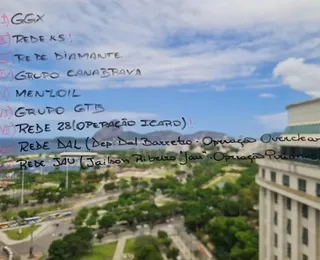 GGX
REDE KS!
REDE DIAMANTE
GRUPO CANABRAVA
MENZOIL
GRUPO GTB
REDE 28 (OPERAÇÃO ICARO)!
REDE DAL (Dep. Dal Barreto - Operação Overclean
REDE JAU (Jailson Ribeiro "Jau" - Operação